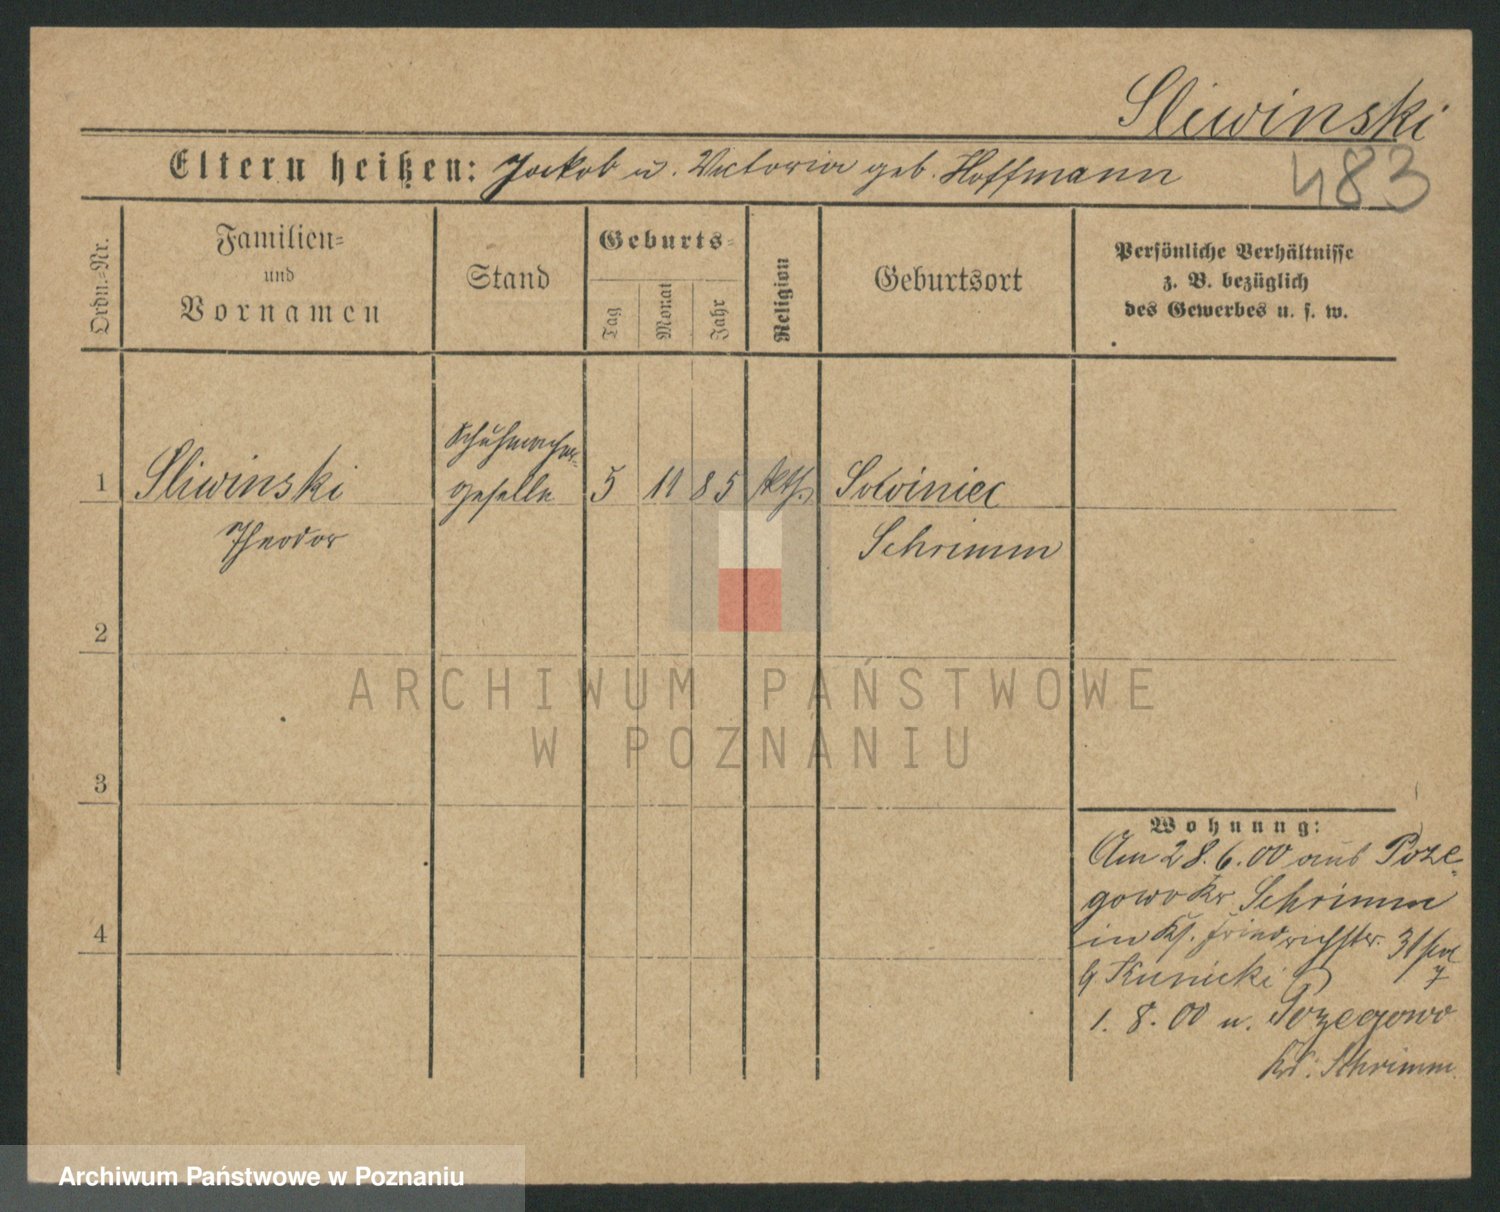 Sliwinski
483
Eltern heißen: Jakob u. Victoria geb. Hoffmann
Ordn.-Nr.
Familien-
und
Vornamen
Stand
Geburts-
Tag
Monat
Jahr
Religion
Geburtsort
Persönliche Verhältnisse
z. B. bezüglich
des Gewerbes u. s. w.
1
Sliwinski
Theodor
Schuhmacher-
geselle
5
11
85
kth.
Sowiniec
Schrimm
2
3
4
ARCHIWUM PAŃSTWOWE
W POZNANIU
Wohnung:
Am 28.6.00 aus Poze-
gowo Kr. Schrimm
in Friedrichstr. 31
Kunicki
1. 8. 00 n. Pozegowo
Kr. Schrimm
Archiwum Państwowe w Poznaniu